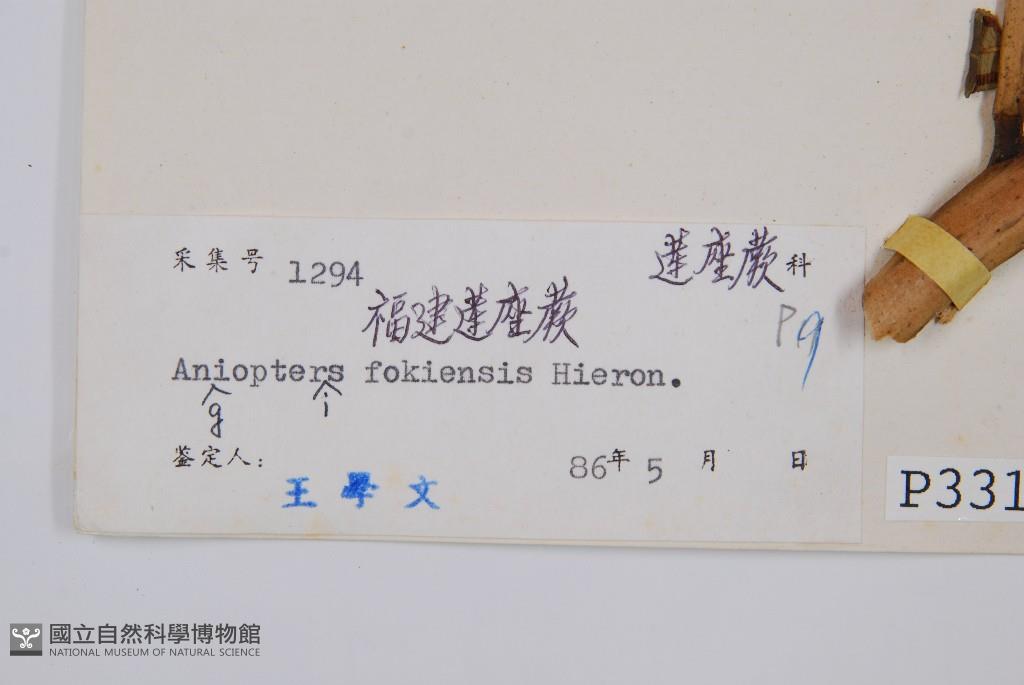 采集号 1294 莲座蕨科
福建莲座蕨 P9
Aniopters fokiensis Hieron.
g i
鉴定人: 86年 5 月 日
王學文
P331
國立自然科學博物館
NATIONAL MUSEUM OF NATURAL SCIENCE